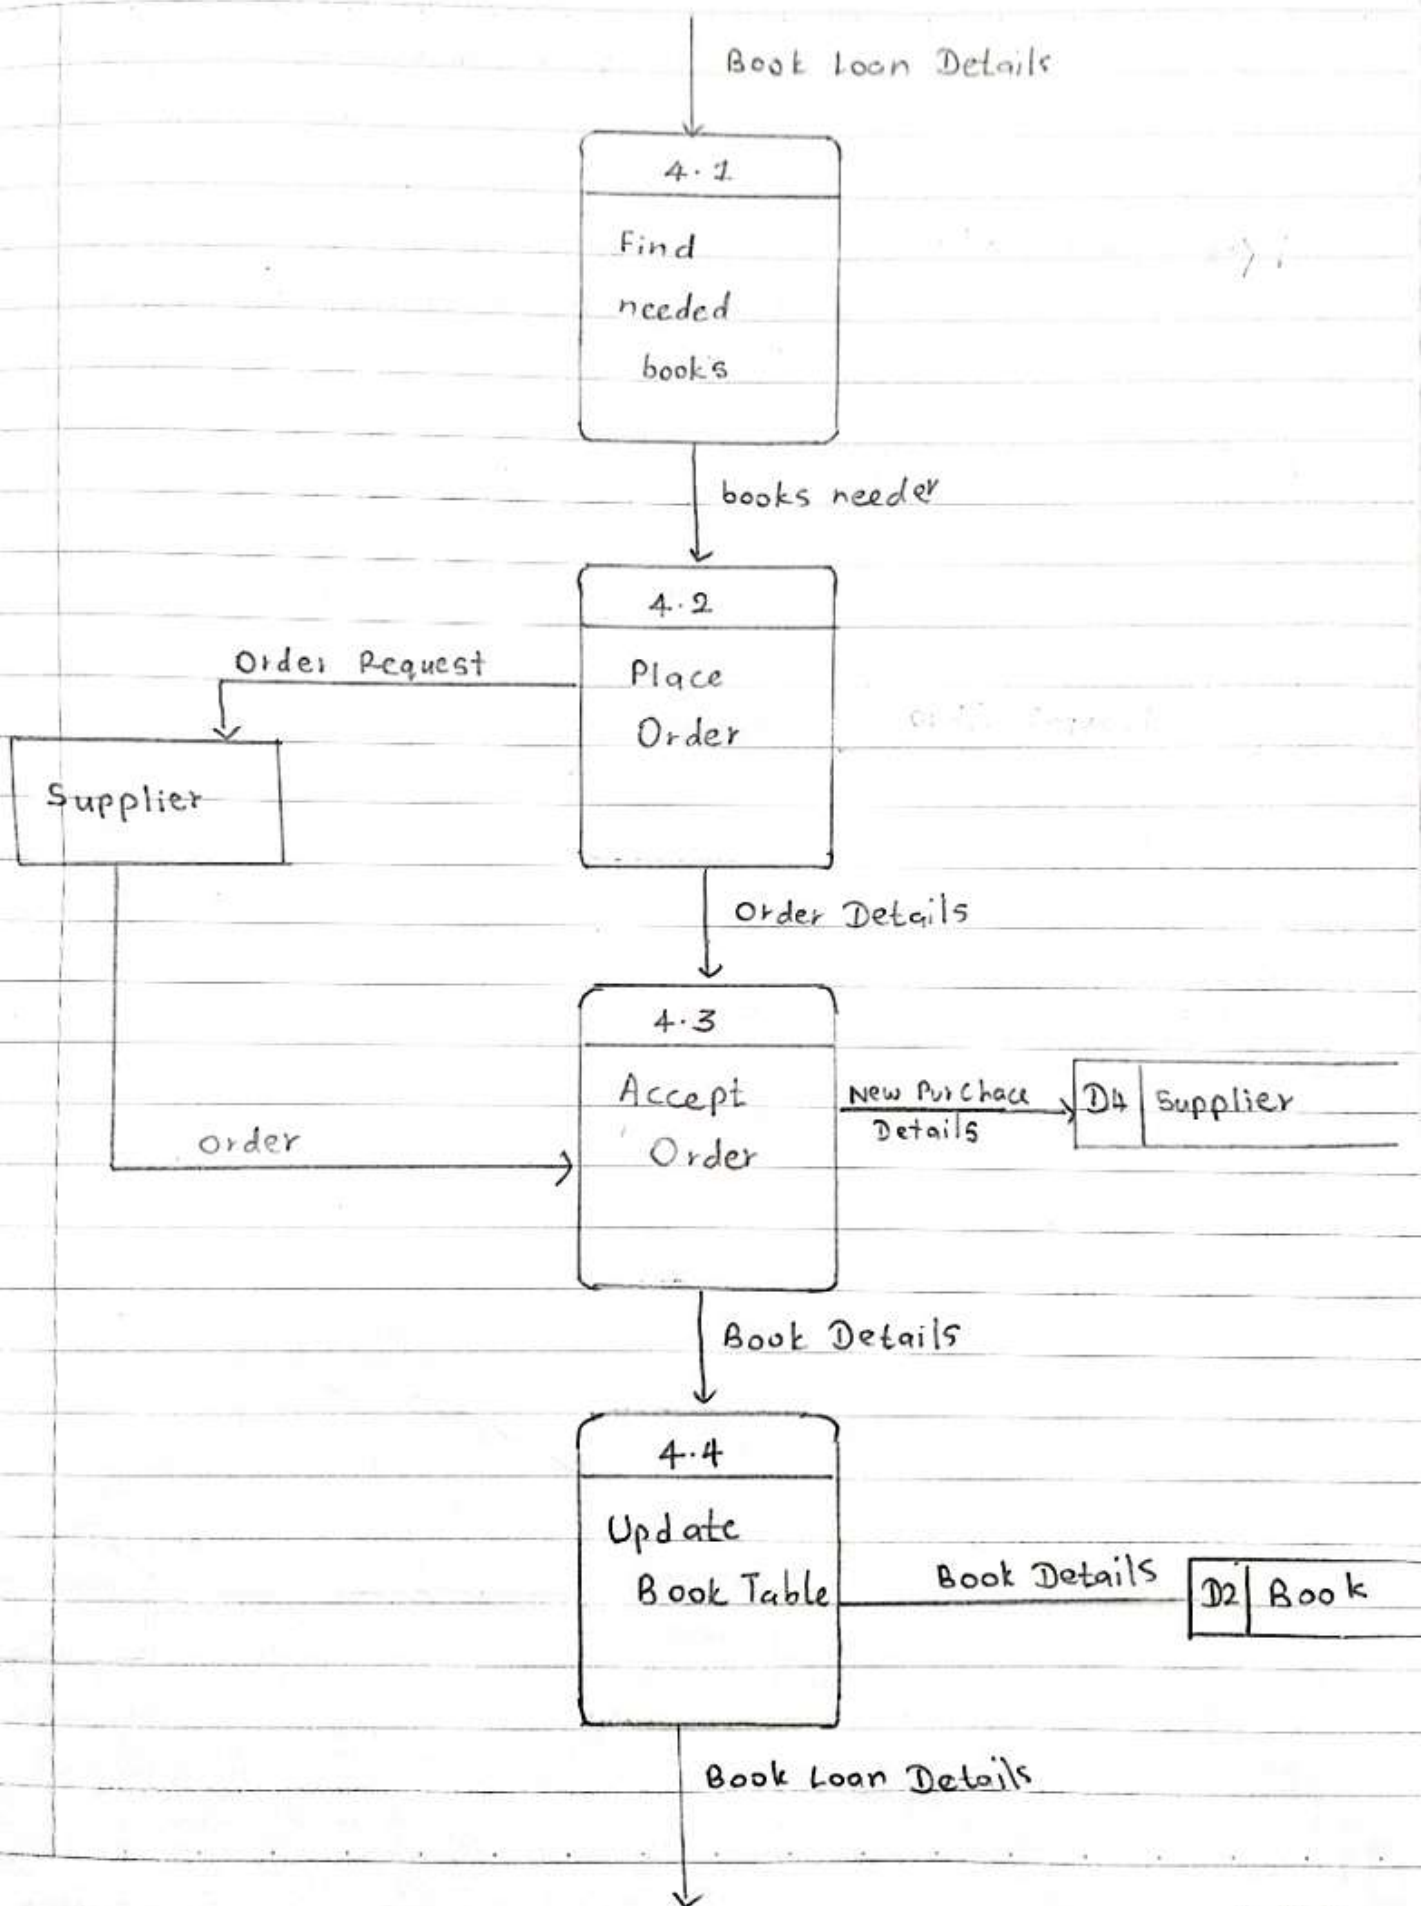 Book Loan Details
4.1
Find
needed
books
books needer
4.2
Order Request
Place
Order
Supplier
Order Details
4.3
Accept
Order
New Purchace
Details
D4 Supplier
Order
Book Details
4.4
Update
Book Table
Book Details
D2 Book
Book Loan Details